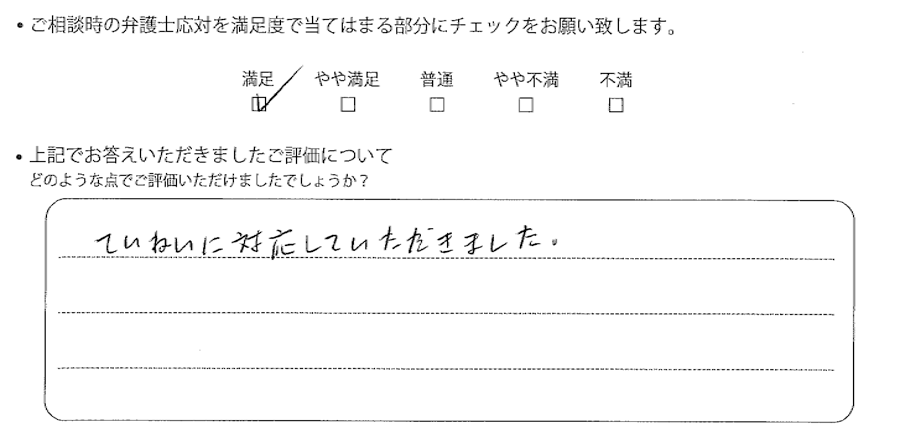 ・ご相談時の弁護士応対を満足度で当てはまる部分にチェックをお願い致します。
満足 やや満足 普通 やや不満 不満
☑ □ □ □ □
・上記でお答えいただきましたご評価について
どのような点でご評価いただけましたでしょうか？
ていねいに対応していただきました。